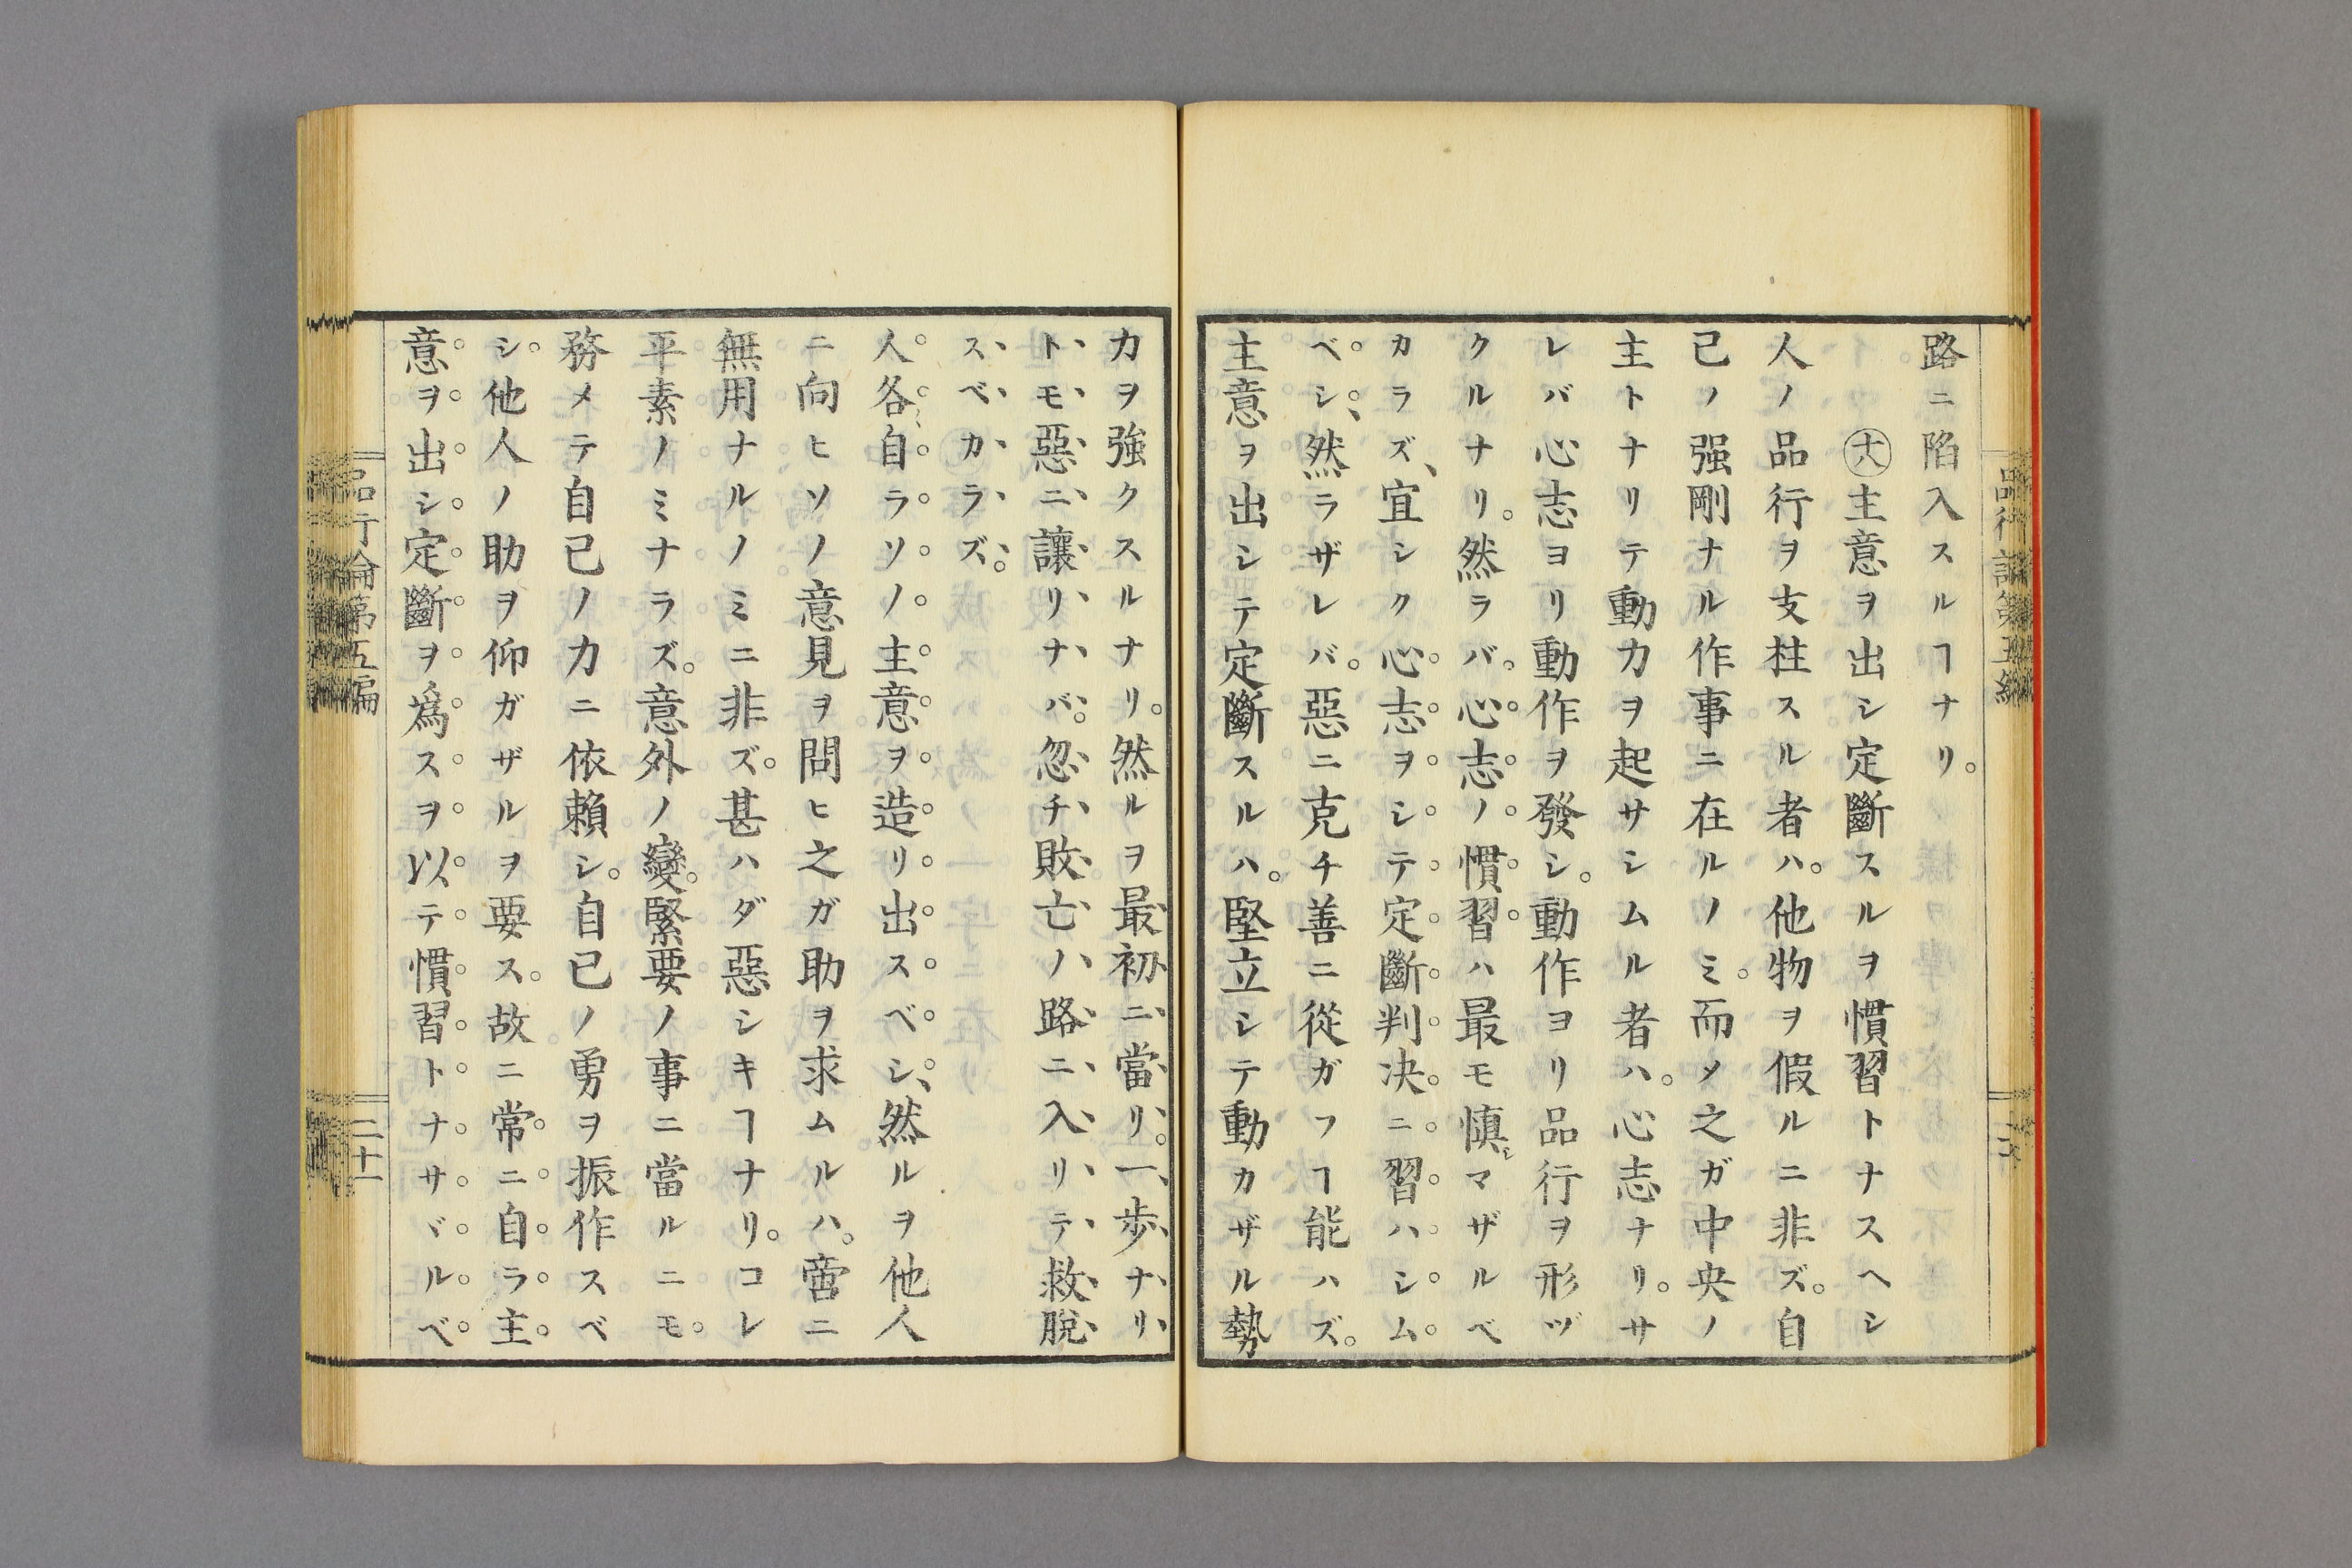 路ニ陷入スルヿナリ。
㊉八主意ヲ出シ定斷スルヲ慣習トナスヘシ
人ノ品行ヲ支柱スル者ハ。他物ヲ假ルニ非ズ。自
己ノ强剛ナル作事ニ在ルノミ。而メ之ガ中央ノ
主トナリテ動力ヲ起サシムル者ハ。心志ナリ。サ
レバ心志ヨリ動作ヲ發シ。動作ヨリ品行ヲ形ヅ
クルナリ。然ラバ。心志ノ慣習ハ最モ愼マザルベ
カラズ、宜シク心志ヲシテ定斷判决ニ習ハシム
ベシ、然ラザレバ。惡ニ克チ善ニ從ガフヿ能ハズ。
主意ヲ出シテ定斷スルハ。堅立シテ動カザル勢
力ヲ強クスルナリ。然ルヲ最初ニ當リ。一歩ナリ
トモ惡ニ讓リナバ。忽チ敗亡ノ路ニ入リテ救脫
スベカラズ。
人各自ラソノ主意ヲ造リ出スベシ、然ルヲ他人
ニ向ヒソノ意見ヲ問ヒ之ガ助ヲ求ムルハ。啻ニ
無用ナルノミニ非ズ。甚ハダ惡シキヿナリ。コレ
平素ノミナラズ。意外ノ變。緊要ノ事ニ當ルニモ。
務メテ自己ノ力ニ依賴シ。自己ノ勇ヲ振作スベ
シ他人ノ助ヲ仰ガザルヲ要ス。故ニ常ニ自ラ主
意ヲ出シ定斷ヲ爲スヲ以テ慣習トナサヾルベ
品行論第五編
二十一